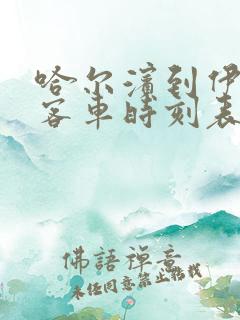 哈尔滨到伊
客车时刻表
佛語禪意
未经同意禁止转载